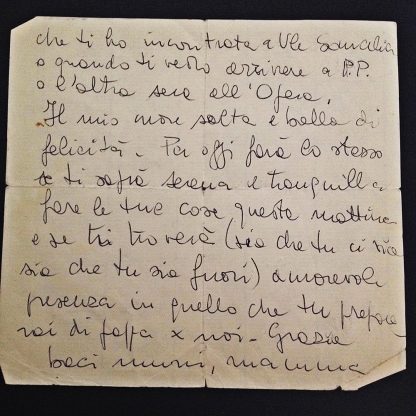 che ti ho incontrata a Vle Somalia
o quando ti vedo arrivare a P.P.
o l'altra sera all'Opera.
Il mio cuore salta e balla di
felicità. Per oggi farà lo stesso
se ti saprà serena e tranquilla
fare le tue cose questa mattina
e se ti troverà (sia che tu ci sia
sia che tu sia fuori) amorevole
presenza in quello che tu prepare
rai di pappa x noi - Grazie
baci mamma